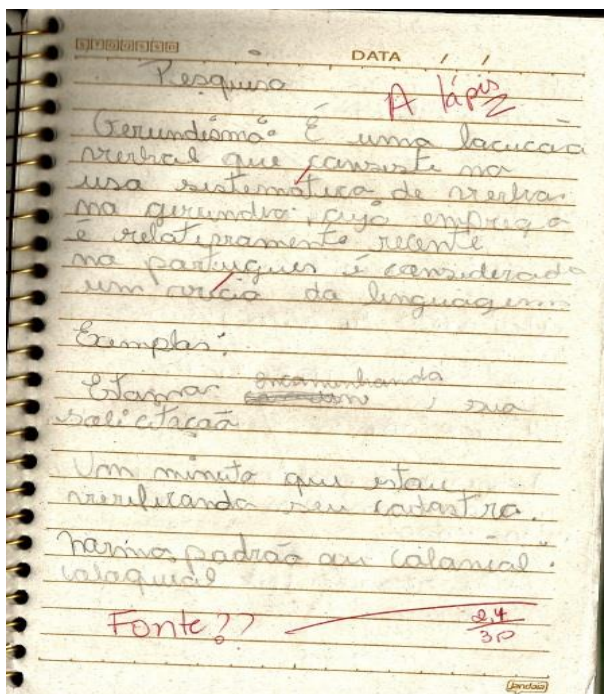 DATA / /
Pesquisa
A lápis
Gerundismo: É uma lacucaã
verbal que consiste no
uso sistemático de verbos
no gerundio, cujo emprego
é relatipramente recente
no portugues é considerado
um vicio da linguagem
Exemplos:
Estamos encaminhando sua
salicitaçaõ
Um minuto que estou
verificando seu cadastro.
padrão ou colonial.
coloquial
Fonte??
2,4
3,0
Jandaia